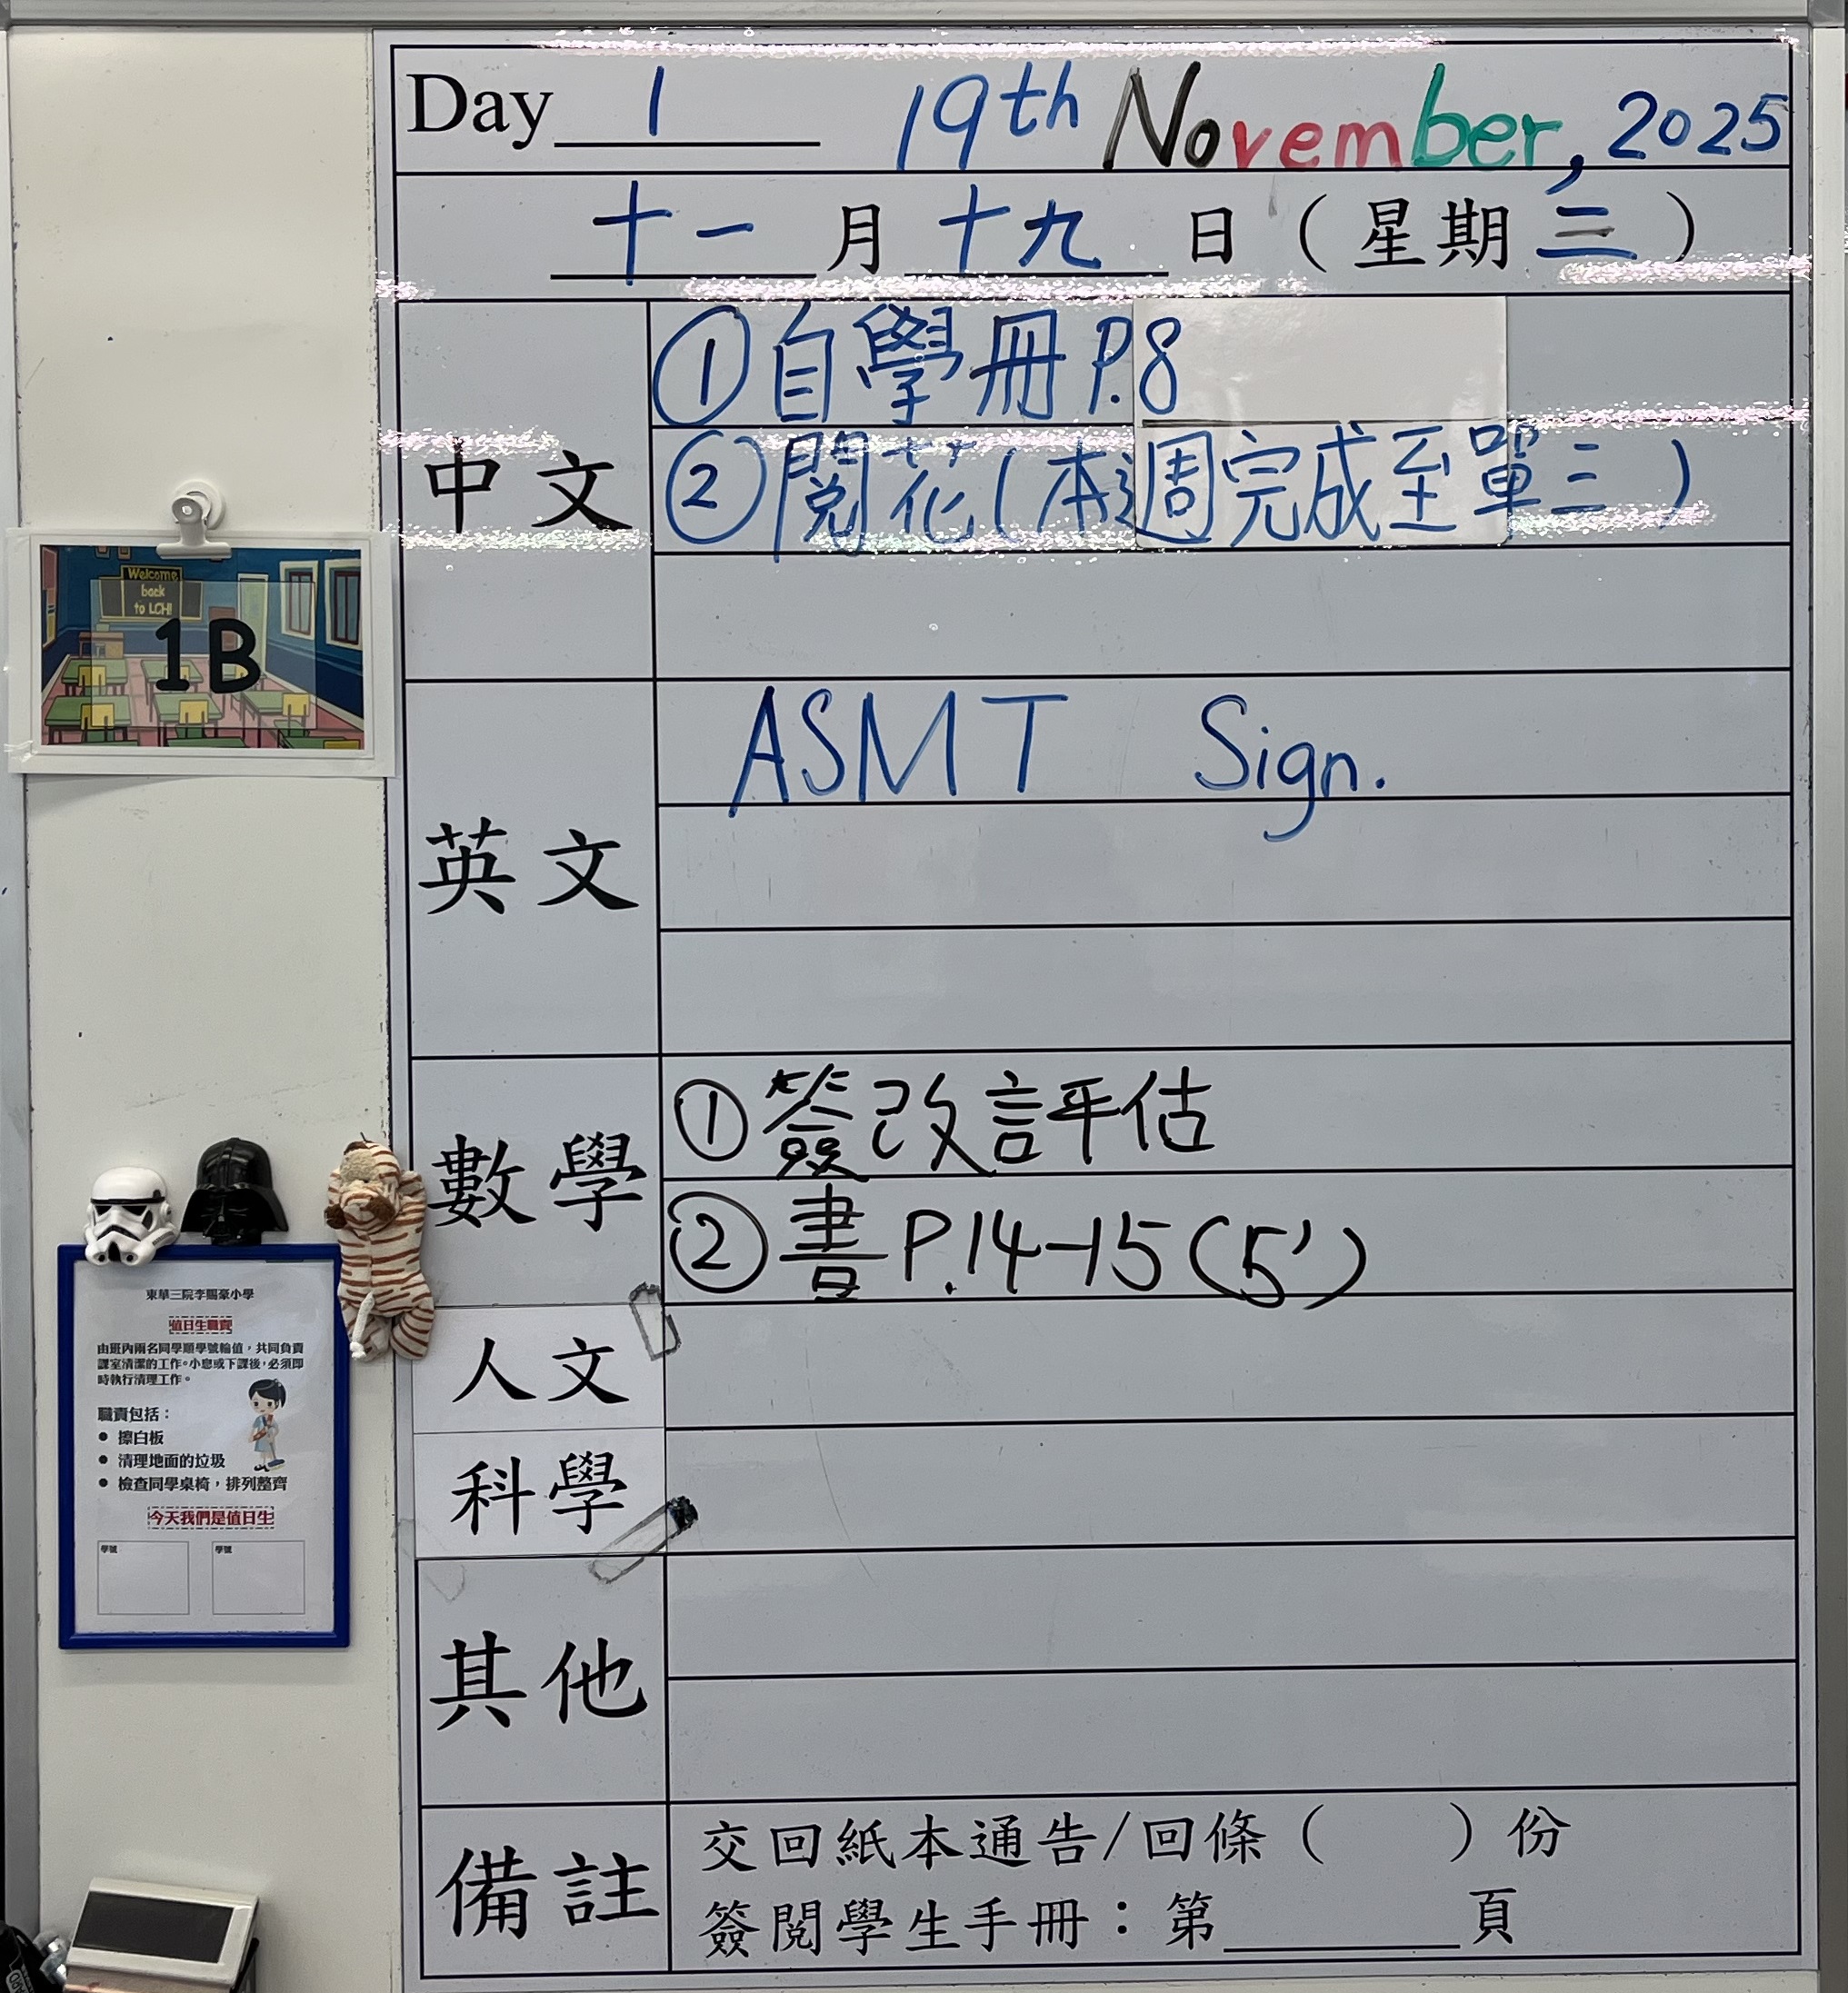 Day 1 19th November, 2025
十一月十九日（星期三）
中文
①自學冊 P.8
②閱花(本週完成至單三)
英文
ASMT Sign.
數學
①簽改評估
②書 P.14-15(5')
人文
科學
其他
備註
交回紙本通告/回條（ ）份
簽閱學生手冊：第______頁
Welcome
back
to LCH!
1B
東華三院李賜豪小學
值日生職責
由班內兩名同學順學號輪值，共同負責
課室清潔的工作。小息或下課後，必須即
時執行清理工作。
職責包括：
● 擦白板
● 清理地面的垃圾
● 檢查同學桌椅，排列整齊
今天我們是值日生
學號 學號